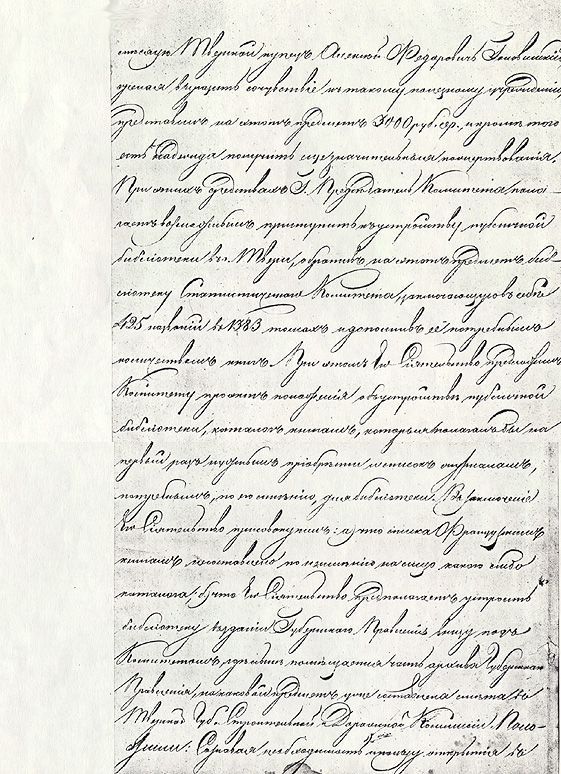 Тверской купец Алексей Федорович Головинский
желая выразить сочувствие к такому полезному учреждению
представил на этот предмет 3000 руб. сер., и кроме того
есть надежда получить еще значительныя пожертвования.
При этих средствах Г. Председатель Комитета пола-
гает возможным приступить к устройству публичной
библиотеки в г. Твери, обратив на этот предмет биб-
лиотеку Статистическаго Комитета, заключающую в себе
425 названий в 1383 томах и дополнив её потребным
количеством книг. При этом Его Сиятельство предложил
Комитету проект положения об устройстве публичной
библиотеки, каталог книгам, которыя полагал бы на
первый раз нужным приобрести и список журналам,
потребным, по его мнению, для библиотеки. В заключение
Его Сиятельство присовокупил: а) что списка Французским
книгам не составлено по неимению на лицо какого либо
каталога; б) что Его Сиятельство предполагает устроить
библиотеку в здании Губернскаго Правления внизу под
Комитетом, где ныне помещается часть архива Губернскаго
Правления, на каковой предмет уже составлена смета в
Тверской Губ. Строительной и Дорожной Комиссии. Поло-
жили: Сознавая необходимость и пользу открытия в